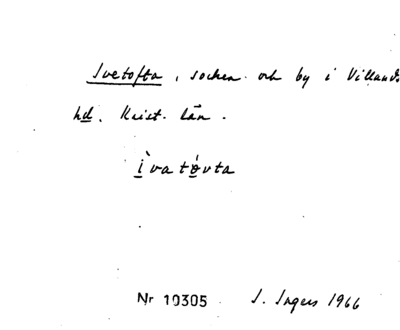 Ivetofta, socken och by i Villands
hd. Krist. län.
ì va tóvta
Nr 10305 I. Ingers 1966